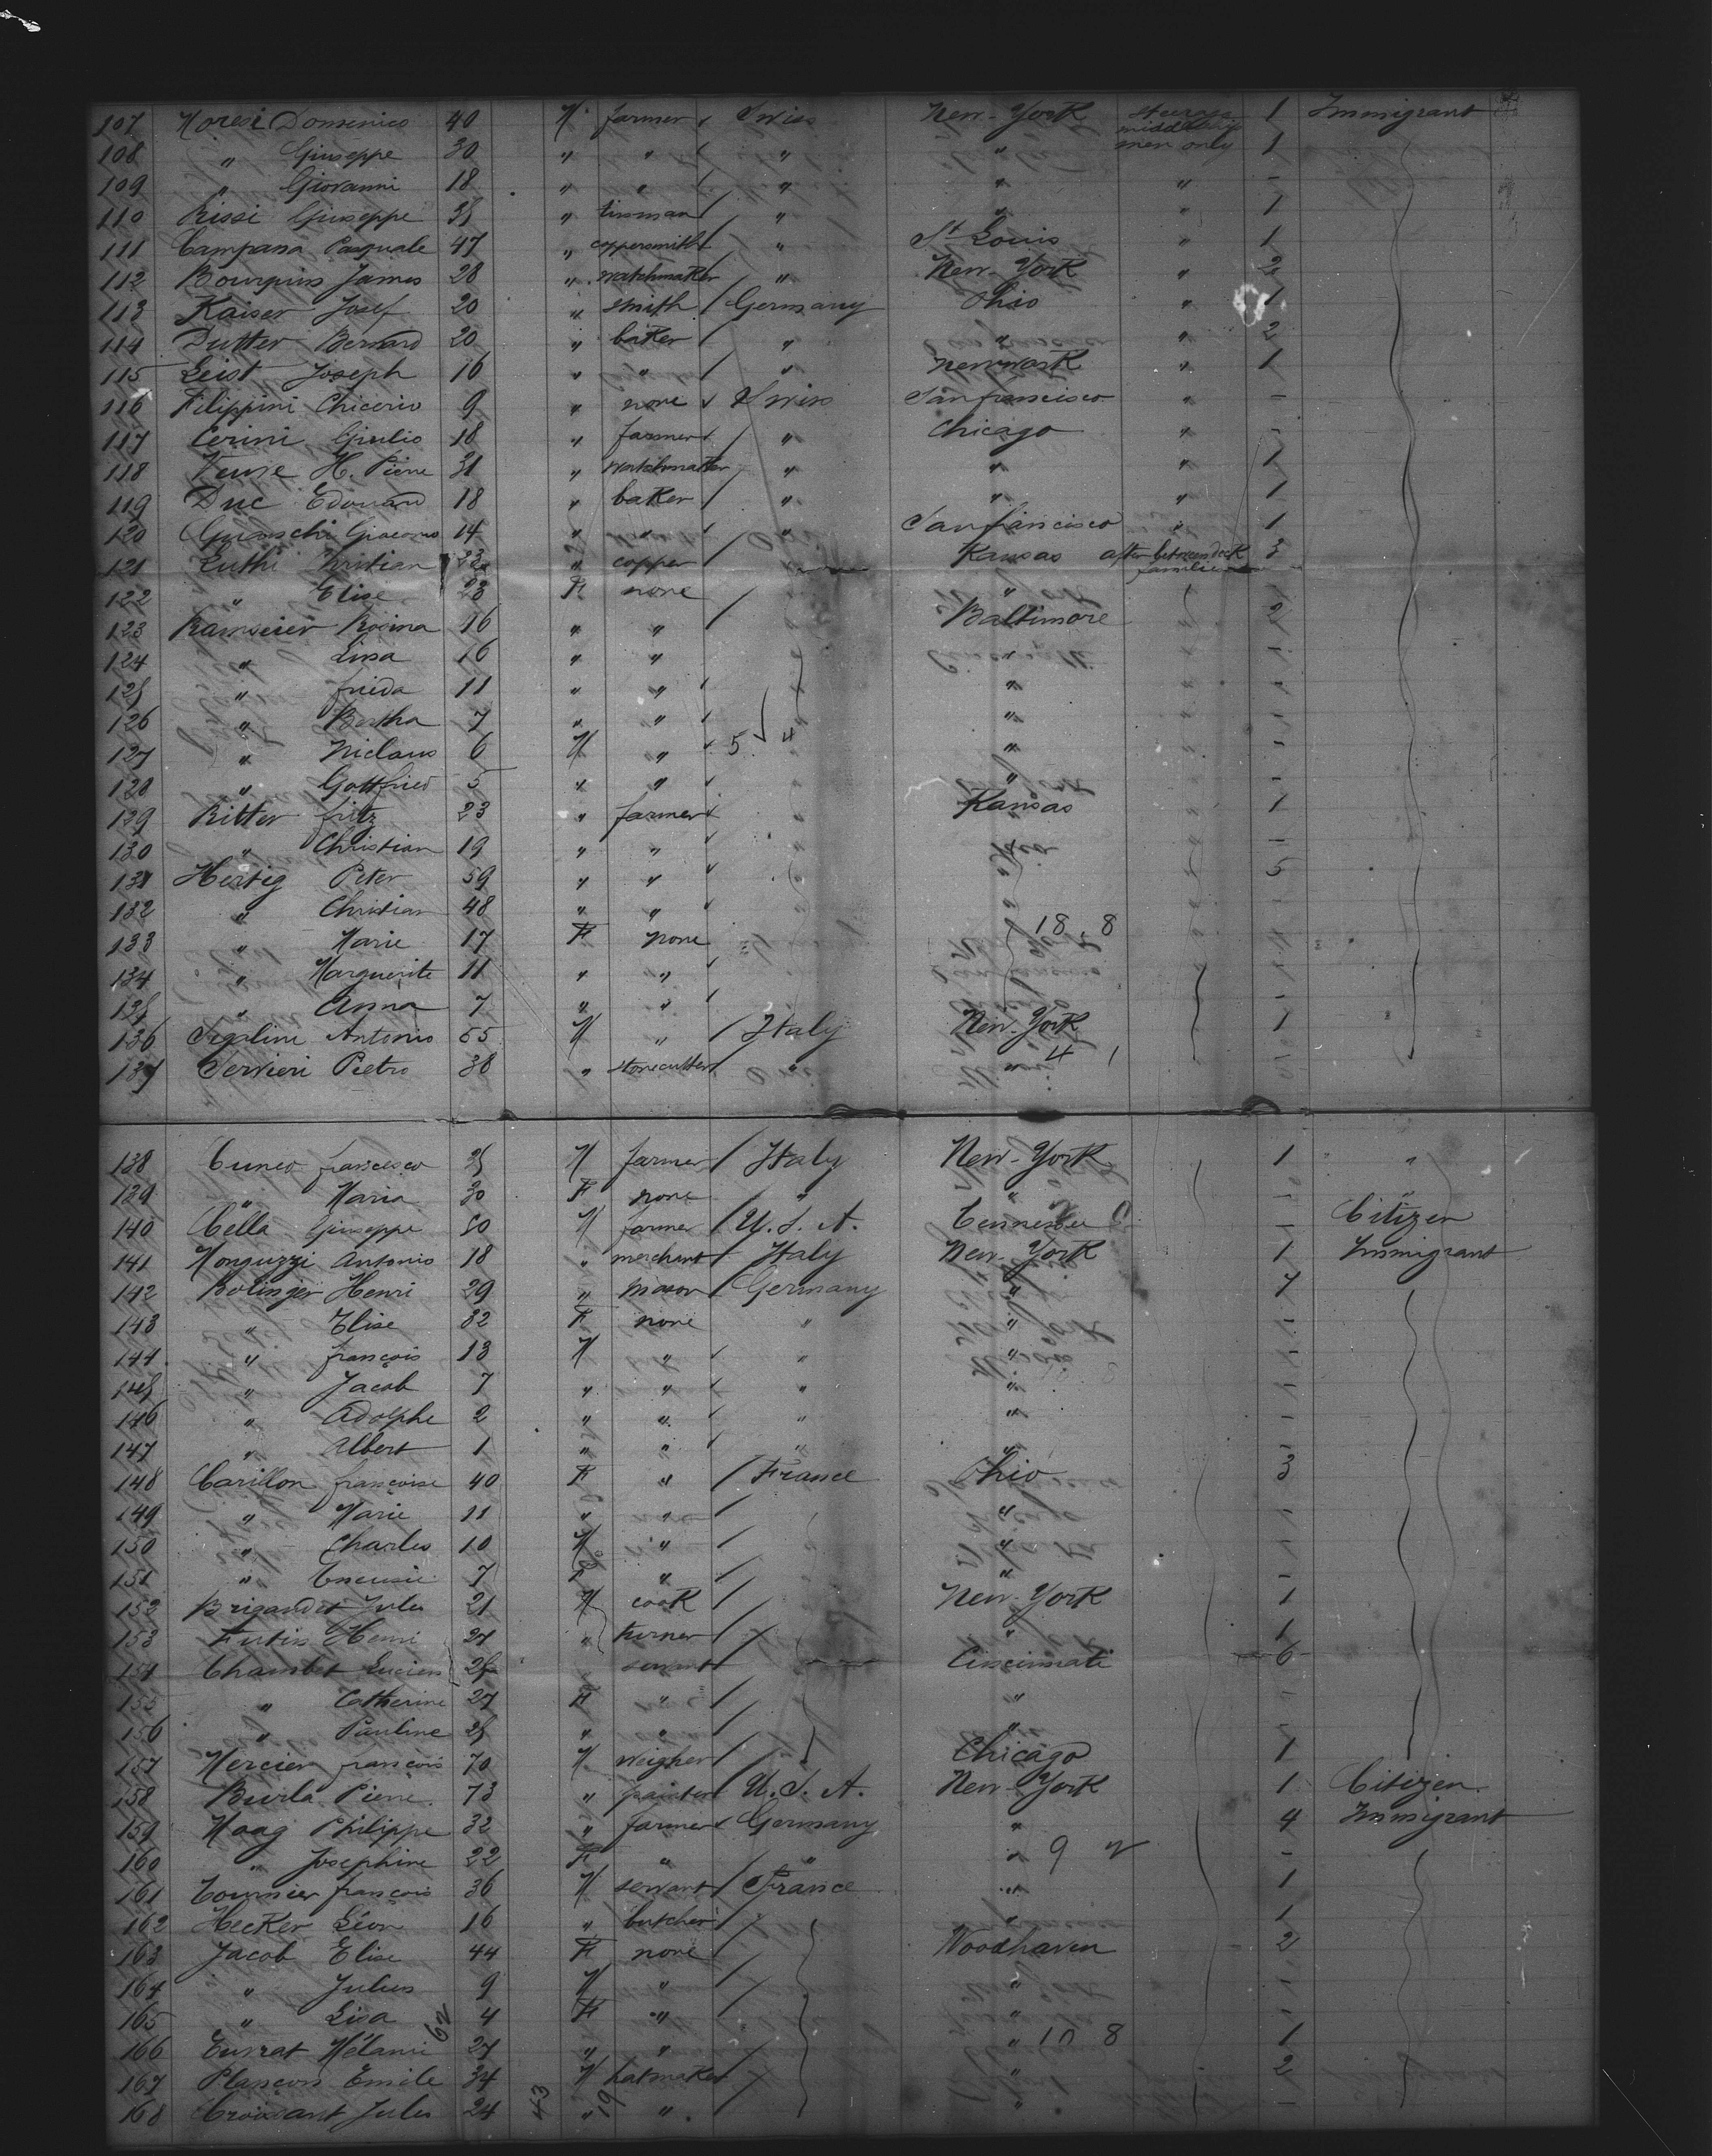 107 Moresi Domenico 40 M. farmer Swiss New-York steerage 1 Immigrant
middleship
108 " Giuseppe 30 " " " " men only 1
109 " Giovanni 18 " " " " " -
110 Rissi Giuseppe 35 " tinsman " " " 1
111 Campana Pasquale 47 " coppersmith " St Louis " 1
112 James 28 " watchmaker " New-York " 2
113 Kaiser Josef 20 " smith Germany Ohio " 1
114 Dutter Bernard 20 " baker " " " 2
115 Leist Joseph 16 " " " Newwark " 1
116 Filippini Chicerio 9 " none Swiss Sanfrancisco " -
117 Cerini Giulio 18 " farmer " Chicago " -
118 Veuve H. Pierre 31 " watchmaker " " " 1
119 Duc Edouard 18 " baker " " " 1
120 Giacomo 14 " " " Sanfrancisco " 1
121 Luthi Christian 32 " copper Kansas after betweendeck 3
families
122 " Elise 23 F none "
123 Ramseier Rosina 16 " " Baltimore 2
124 " Lina 16 " " " -
125 " frieda 11 " " " -
126 " Bertha 7 " " " -
127 " Niclaus 6 M " 5 4 " -
128 " Gottfried 5 " " " -
129 Ritter fritz 23 " farmer Kansas 1
130 " Christian 19 " " -
131 Hertig Peter 59 " " " 5
132 " Christian 48 " " " -
133 " Marie 17 F none 18 8
134 " Marguerite 11 " "
135 " Anna 7 " " -
136 Antonio 55 M " Italy New-York 1
137 Pietro 38 " stonecutter " " 4 1
138 Cuneo francesco 35 M farmer Italy New-York 1 "
139 " Maria 30 F none " " - "
140 Cella Giuseppe 50 M farmer U.S.A. Tennessee - Citizen
141 Monguzzi Antonio 18 " merchant Italy New-York 1 Immigrant
142 Bolinger Henri 29 " mason Germany " 7
143 " Elise 32 F none " " -
144 " françois 13 M " " " -
145 " Jacob 7 " " " " -
146 " Adolphe 2 " " " " -
147 " Albert 1 " " " "
148 Carillon françoise 40 F " France Ohio 3
149 " Marie 11 " " " -
150 " Charles 10 M " " -
151 " 7 F " " -
152 Brigandet Jules 21 M cook New-York 1
153 Henri 24 " turner " 1
154 Chambet Lucien 25 servant Cincinnati 6
155 " Catherine 27 F " " -
156 " Pauline 25 " " " -
157 Mercier françois 70 M weigher Chicago 1
158 Burla Pierre 73 " painter U.S.A. New-York 1 Citizen
159 Haag Philippe 32 " farmer Germany " 4 Immigrant
160 " Josephine 22 F " " " 9 2 -
161 Tournier françois 36 M servant France " 1
162 Hecker Léon 16 " butcher " 1
163 Jacob Elise 44 F none Woodhaven 2
164 " Julius 9 M " " -
165 " Lisa 4 F " " -
62
166 Mélanie 27 " " " 10 8 1
167 Plançon Emile 34 M hatmaker " 2
168 Croissant Jules 24 43 " 19 " " -